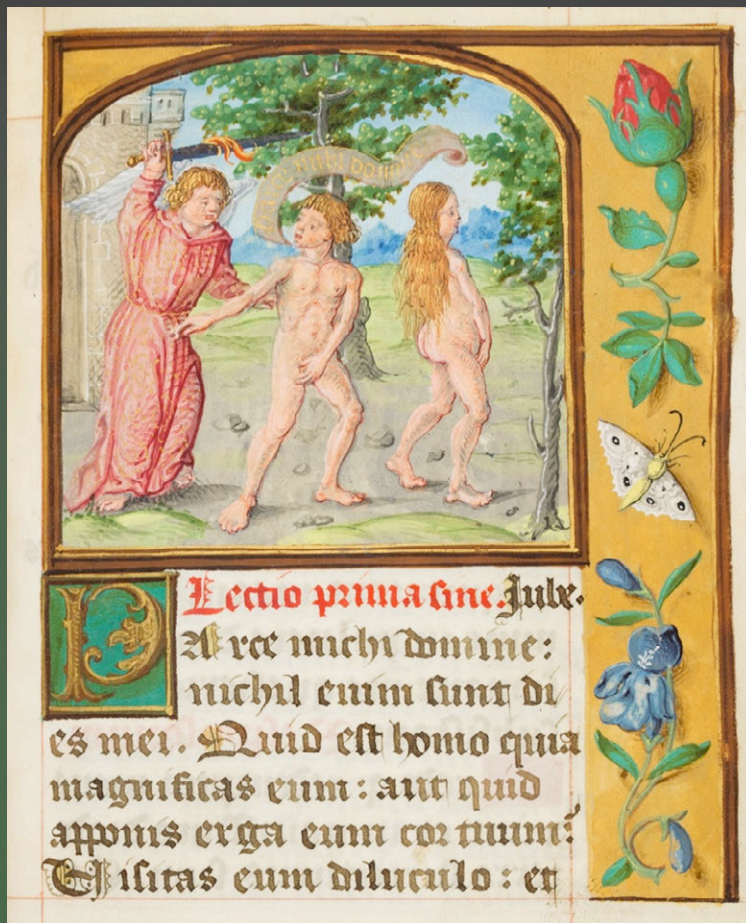 PARCE MICHI DOMINE
Lectio prima sine. Jube.
PArce michi domine:
nichil enim sunt di
es mei. Quid est homo quia
magnificas eum: aut quid
apponis erga eum cor tuum?
Visitas eum diluculo: et